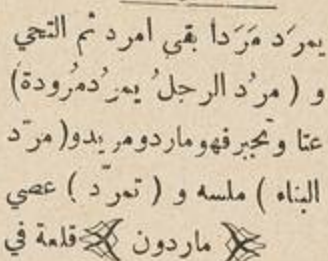 يمرَد مَرَدا بقي امرد ثم التحي
و ( مرُد الرجلُ يمرُد مُرودة )
عتا وتجبر فهو مارد ومريد و ( مرّد
البناء ) ملسه و ( تمرّد ) عصي
ماردون قلعة في